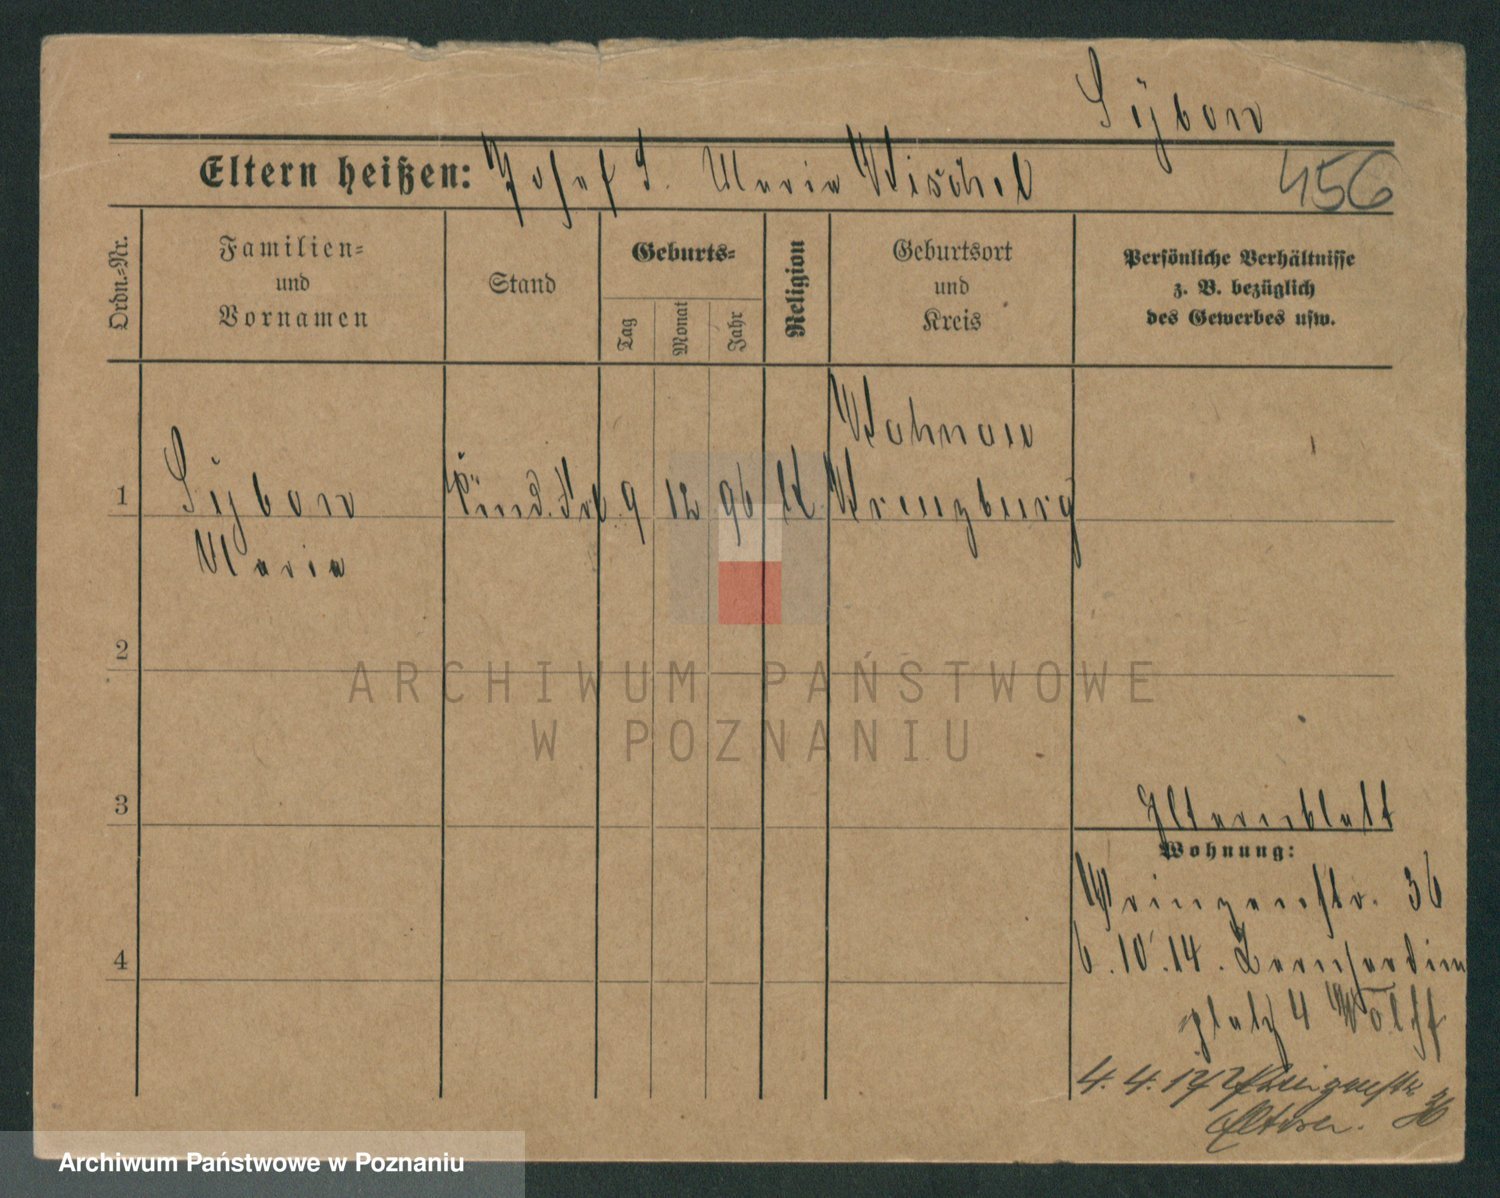 Sÿbow
Eltern heißen: Josef S. Maria Wischel
456
Ordn.=Nr.
Familien=
und
Vornamen
Stand
Geburts=
Tag
Monat
Jahr
Religion
Geburtsort
und
Kreis
Persönliche Verhältnisse
z. B. bezüglich
des Gewerbes usw.
1
Sÿbow
Maria
9 12 96
Kreuzburg
2
3
4
Elternblatt
Wohnung:
Prinzenstr. 36
6.10.14. Bernhardin
platz 4 Wolff
4. 4. 17 Prinzenstr. 36
Eltern.
ARCHIWUM PAŃSTWOWE
W POZNANIU
Archiwum Państwowe w Poznaniu